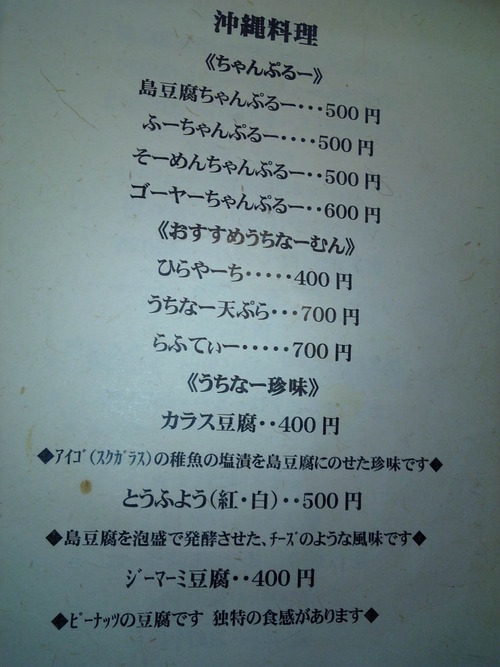 沖縄料理
《ちゃんぷるー》
島豆腐ちゃんぷるー･･･500円
ふーちゃんぷるー････500円
そーめんちゃんぷるー･･500円
ゴーヤーちゃんぷるー･･600円
《おすすめうちなーむん》
ひらやーち･････400円
うちなー天ぷら･･･700円
らふてぃー･････700円
《うちなー珍味》
カラス豆腐･･400円
◆ｱｲｺﾞ(ｽｸｶﾞﾗｽ)の稚魚の塩漬を島豆腐にのせた珍味です◆
とうふよう(紅・白)･･500円
◆島豆腐を泡盛で発酵させた、ﾁｰｽﾞのような風味です◆
ｼﾞｰﾏｰﾐ豆腐･･400円
◆ﾋﾟｰﾅｯﾂの豆腐です 独特の食感があります◆